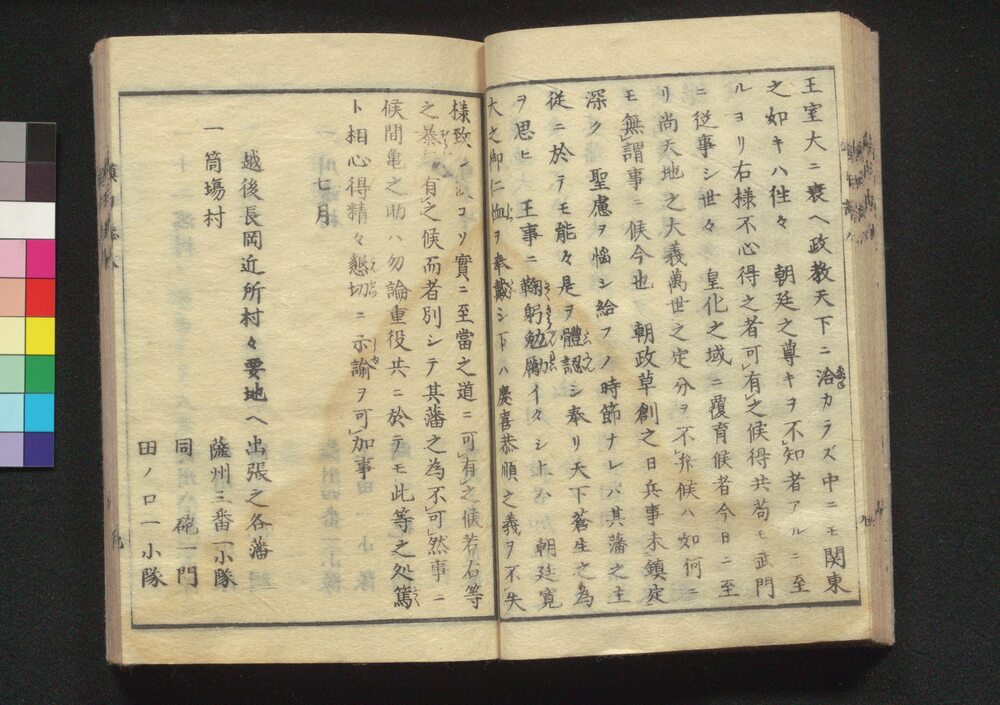 王室大ニ衰ヘ政教天下ニ洽カラズ中ニモ関東
之如キハ往々 朝廷之尊キヲ不知者アルニ至
ルヨリ右様不心得之者可有之候得共苟モ武門
ニ従事シ世々 皇化之域ニ覆育候者今日ニ至
リ尚天地之大義萬世之定分ヲ不弁候ハ如何ニ
モ無謂事ニ候今也 朝政草創之日兵事未鎮定
深ク聖慮ヲ悩シ給フノ時節ナレハ其藩之主
従ニ於テモ能々是ヲ體認シ奉リ天下蒼生之為
ヲ思ヒ 王事ニ鞠躬勉励イタシ上ハ 朝廷寛
大之御仁恤ヲ奉戴シ下ハ慶喜恭順之義ヲ不失
様致 コソ實ニ至當之道ニ可有之候若右等
之暴 有之候而者別シテ其藩之為不可然事ニ
候間亀之助ハ勿論重役共ニ於テモ此等之処篤
ト相心得精々懇切ニ示諭ヲ可加事
七月
越後長岡近所村々要地ヘ出張之各藩
一 筒場村
薩州三番一小隊
同 砲一門
田ノ口一小隊